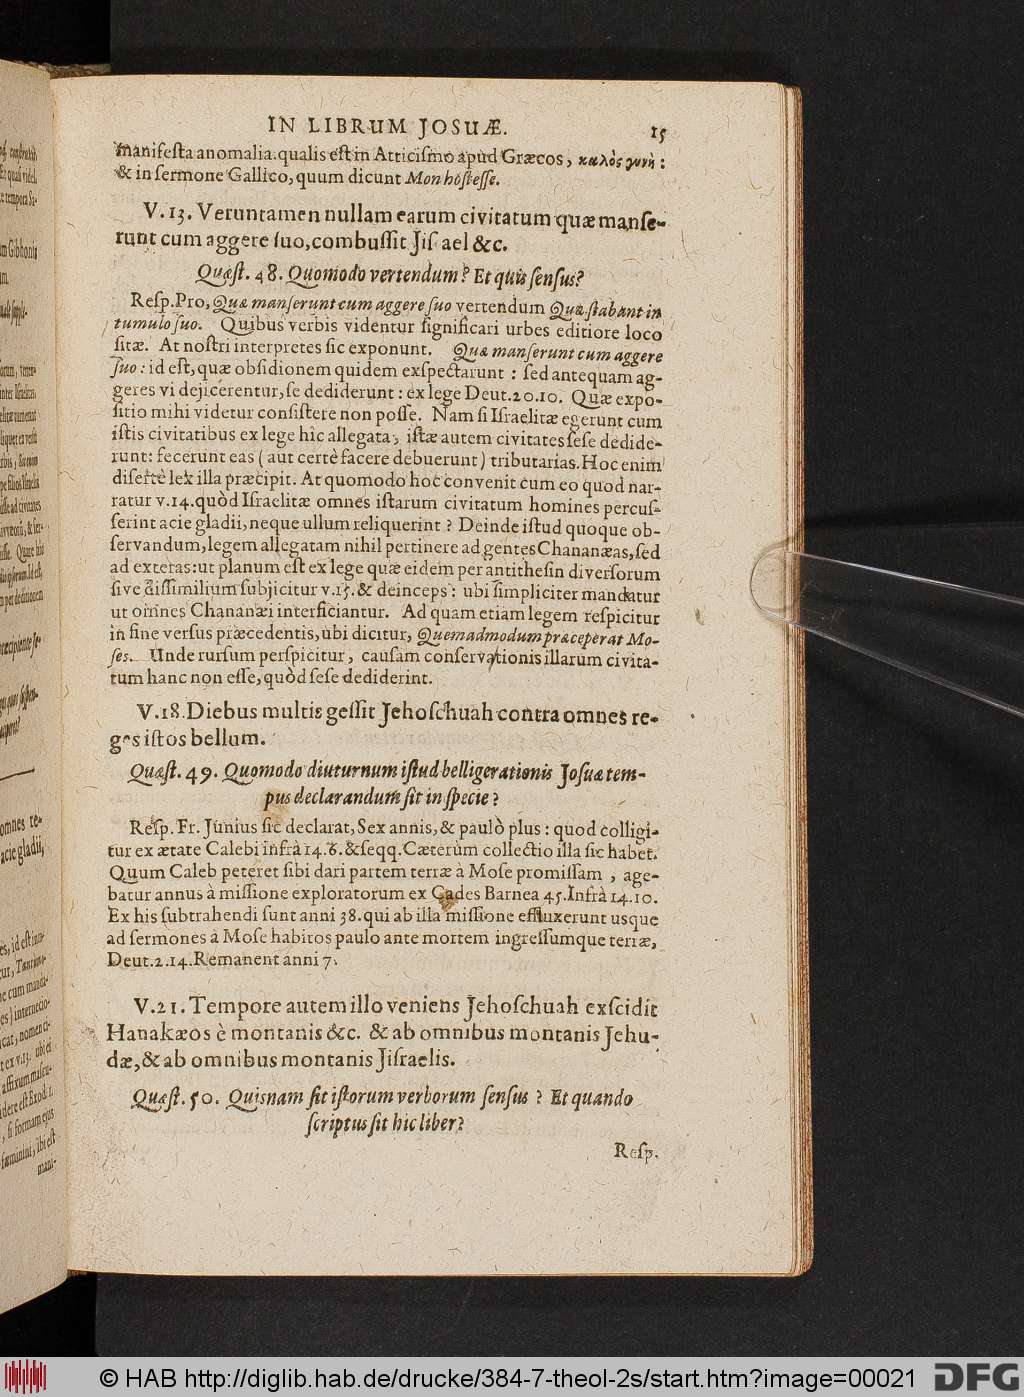 IN LIBRUM JOSUÆ. 15
manifesta anomalia. qualis est in Atticismo apud Græcos, καλὸς γυνὴ:
& in sermone Gallico, quum dicunt Mon hostesse.
V. 13. Veruntamen nullam earum civitatum quæ manse-
runt cum aggere suo, combussit Jis ael &c.
Quæst. 48. Quomodo vertendum? Et quis sensus?
Resp. Pro, Quæ manserunt cum aggere suo vertendum Quæ stabant in
tumulo suo. Quibus verbis videntur significari urbes editiore loco
sitæ. At nostri interpretes sic exponunt. Quæ manserunt cum aggere
suo: id est, quæ obsidionem quidem exspectarunt: sed antequam ag-
geres vi dejicerentur, se dediderunt: ex lege Deut. 20. 10. Quæ expo-
sitio mihi videtur consistere non posse. Nam si Israelitæ egerunt cum
istis civitatibus ex lege hic allegata, istæ autem civitates sese dedide-
runt: fecerunt eas (aut certè facere debuerunt) tributarias. Hoc enim
disertè lex illa præcipit. At quomodo hoc convenit cum eo quod nar-
ratur v. 14. quòd Israelitæ omnes istarum civitatum homines percus-
serint acie gladii, neque ullum reliquerint? Deinde istud quoque ob-
servandum, legem allegatam nihil pertinere ad gentes Chananæas, sed
ad exteras: ut planum est ex lege quæ eidem per antithesin diversorum
sive dissimilium subjicitur v. 15. & deinceps: ubi simpliciter mandatur
ut omnes Chananæi interficiantur. Ad quam etiam legem respicitur
in fine versus præcedentis, ubi dicitur, Quemadmodum præceperat Mo-
ses. Unde rursum perspicitur, causam conservationis illarum civita-
tum hanc non esse, quòd sese dediderint.
V. 18. Diebus multis gessit Jehoschuah contra omnes re-
ges istos bellum.
Quæst. 49. Quomodo diuturnum istud belligerationis Josuæ tem-
pus declarandum sit in specie?
Resp. Fr. Junius sic declarat, Sex annis, & paulò plus: quod colligi-
tur ex ætate Calebi infrà 14. 6. & seqq. Cæterùm collectio illa sic habet.
Quum Caleb peteret sibi dari partem terræ à Mose promissam, age-
batur annus à missione exploratorum ex Cades Barnea 45. Infrà 14. 10.
Ex his subtrahendi sunt anni 38. qui ab illa missione effluxerunt usque
ad sermones à Mose habitos paulo ante mortem ingressumque terræ,
Deut. 2. 14. Remanent anni 7.
V. 21. Tempore autem illo veniens Jehoschuah exscidit
Hanakæos è montanis &c. & ab omnibus montanis Jehu-
dæ, & ab omnibus montanis Jisraelis.
Quæst. 50. Quisnam sit istorum verborum sensus? Et quando
scriptus sit hic liber?
Resp.
© HAB http://diglib.hab.de/drucke/384-7-theol-2s/start.htm?image=00021
DFG